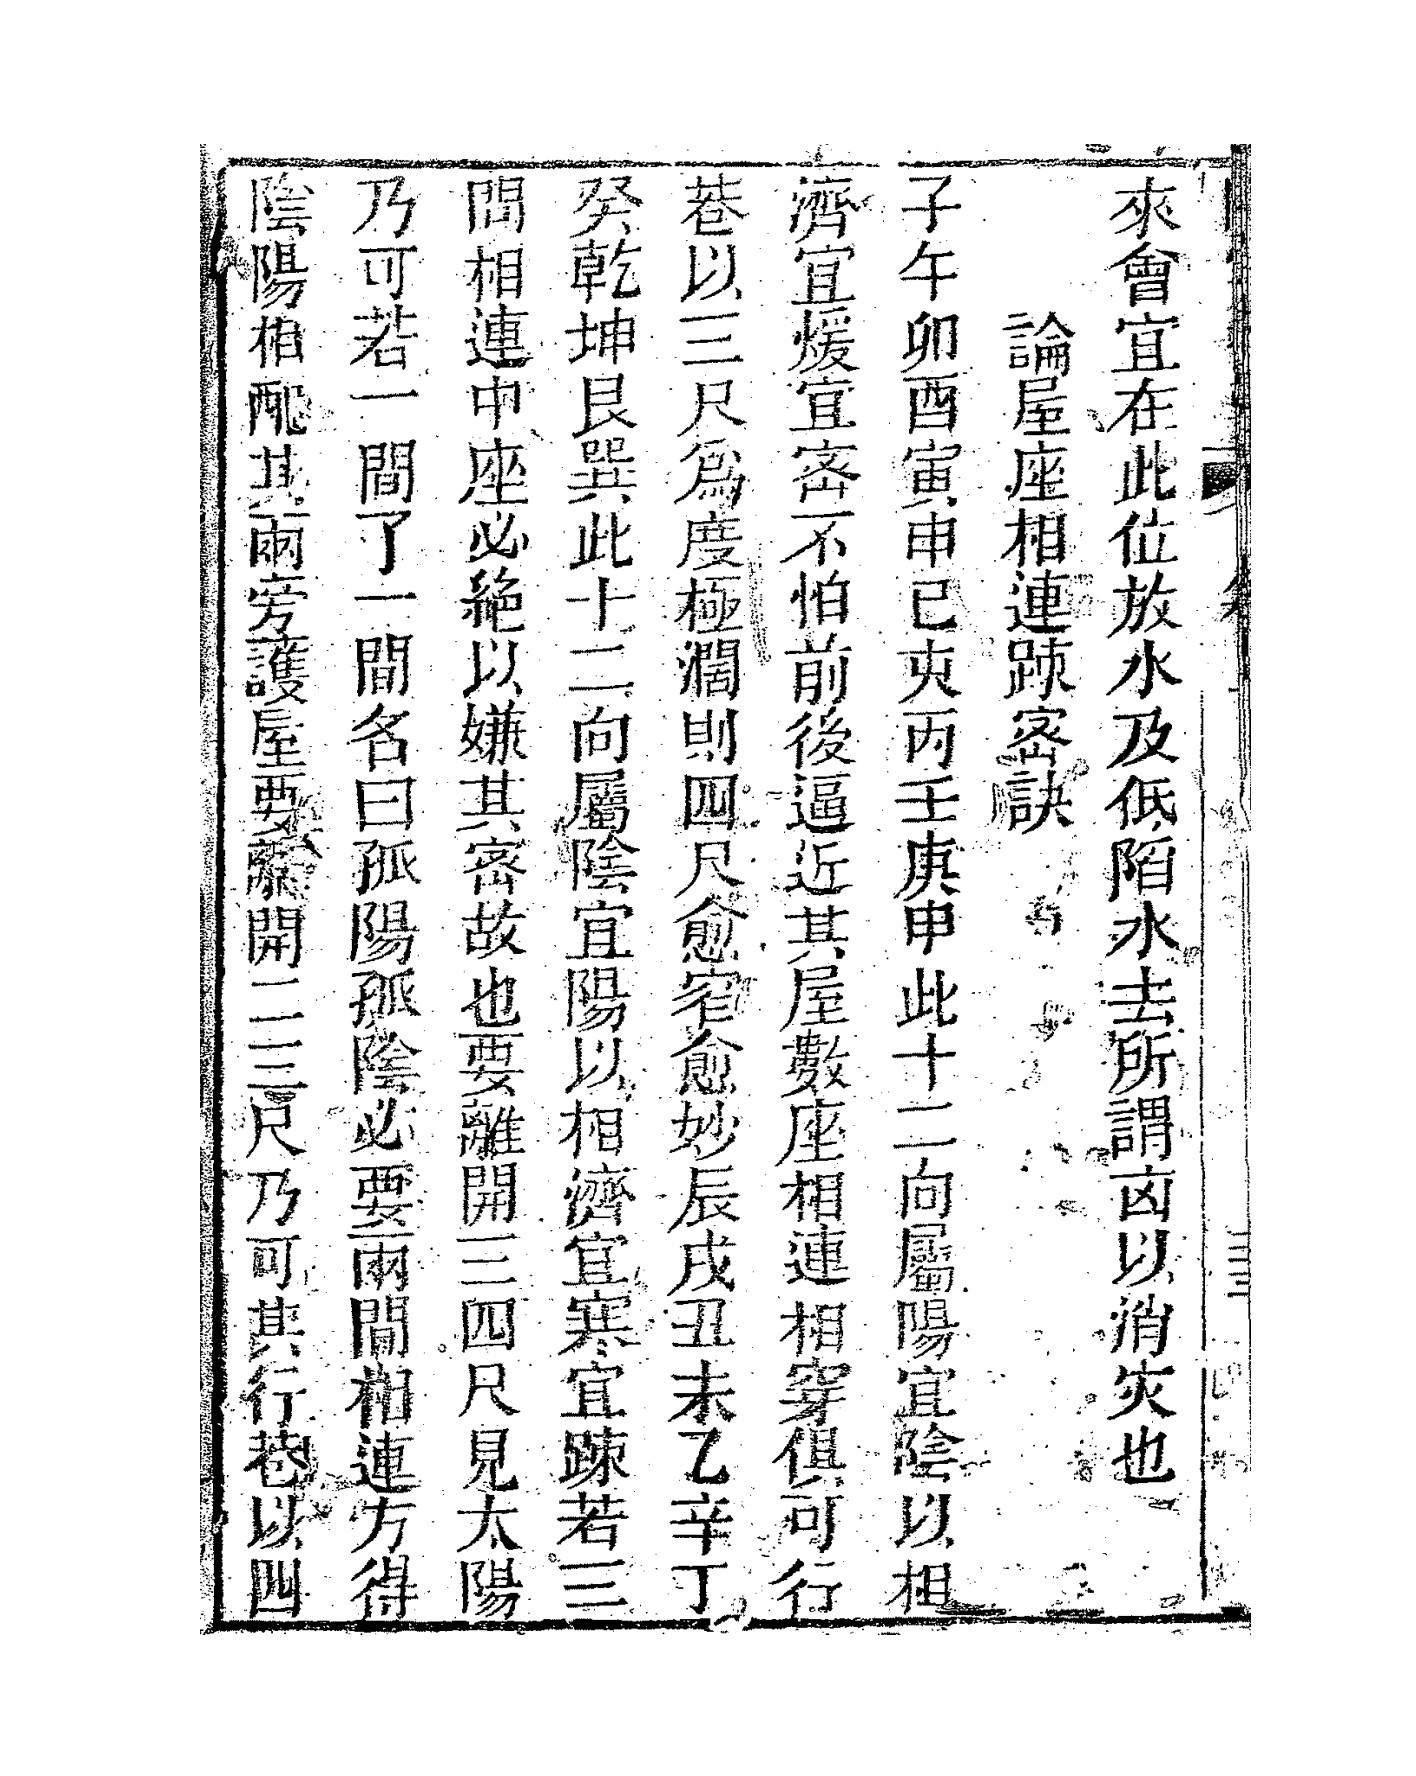 來會宜在此位放水及低陷水去所謂凶以消灾也
論屋座相連踈密訣
子午卯酉寅申巳亥丙壬庚申此十二向屬陽宜陰以相
濟宜煖宜密不怕前後逼近其屋數座相連相穿俱可行
巷以三尺爲度極濶則四尺愈窄愈妙辰戌丑未乙辛丁
癸乾坤艮巽此十二向屬陰宜陽以相濟宜寒宜踈若三
間相連中座必絕以嫌其密故也要離開三四尺見太陽
乃可若一間了一間名曰孤陽孤陰必要兩間相連方得
陰陽相配其兩旁護屋要離開二三尺乃可其行巷以四